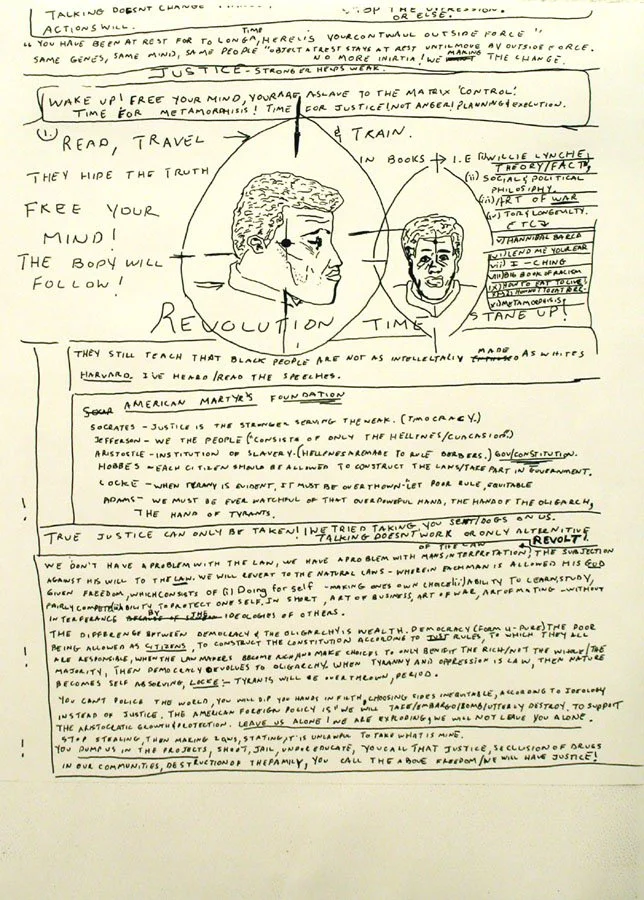 TALKING DOESNT CHANGE
STOP THE OPPRESSION.
OR ELSE.
ACTIONS WILL.
"YOU HAVE BEEN AT REST FOR TO LONG, HERE IS YOUR CONTWAUL OUTSIDE FORCE"
TIME
SAME GENES, SAME MIND, SAME PEOPLE "OBJECT AT REST STAYS AT REST UNTIL MOVE BY OUTSIDE FORCE.
NO MORE INIRTIA! WE MAKING THE CHANGE.
JUSTICE - STRONGER HELPS WEAK.
WAKE UP! FREE YOUR MIND, YOUR ARE A SLAVE TO THE MATRIX 'CONTROL'.
TIME FOR METAMORPHISIS! TIME FOR JUSTICE! NOT ANGER! PLANNING & EXECUTION.
(1.) READ, TRAVEL & TRAIN.
IN BOOKS → I.E (i) WILLIE LYNCHE
THEORY/FACT,
(ii) SOCIAL & POLITICAL
PHILOSOPHY.
(iii) ART OF WAR
(iv) TORY LONGEVALTY.
ETC
v) HANNIBAL BARCA
vi) LEND ME YOUR EAR
vii) I - CHING
viii) BIG BOOK OF RACISM
ix) HOW TO EAT TO LIVE
xi) METAMORPOISIS
THEY HIDE THE TRUTH
FREE YOUR
MIND!
THE BODY WILL
FOLLOW!
REVOLUTION TIME STAND UP!
THEY STILL TEACH THAT BLACK PEOPLE ARE NOT AS INTELLELTALIY MADE AS WHITES
HARVARD. I'VE HEARD/READ THE SPEECHES.
AMERICAN MARTYR'S FOUNDATION
SOCRATES - JUSTICE IS THE STRONGER SERVING THE WEAK. (TIMOCRACY.)
JEFFERSON - WE THE PEOPLE ("CONSISTS OF ONLY THE HELLINES/CUACASION".)
ARISTOSTLE - INSTITUTION OF SLAVERY. (HELLENES ARE MADE TO RULE BERBERS.) GOV/CONSTITUTION.
HOBBE'S - EACH CITIZEN SHOULD BE ALLOWED TO CONSTRUCT THE LAWS/TAKE PART IN GOVERNMENT.
LOCKE - WHEN TYRANY IS EVIDENT, IT MUST BE OVERTHOWN - "LET POOR RULE, EQUITABLE
ADAMS - WE MUST BE EVER WATCHFUL OF THAT OVERPOWEFUL HAND, THE HAND OF THE OLIGARCH,
THE HAND OF TYRANTS.
TRUE JUSTICE CAN ONLY BE TAKEN! I WE TRIED TAKING YOU SEAT/DOGS ON US.
TALKING DOESNT WORK OR ONLY ALTERNITIVE
REVOLT!
OF THE LAW
WE DON'T HAVE A PROBLEM WITH THE LAW, WE HAVE A PROBLEM WITH MANS INTERPROTATION! THE SUBJECTION
AGAINST HIS WILL TO THE LAW. WE WILL REVERT TO THE NATURAL LAWS - WHEREIN EACH MAN IS ALLOWED HIS GOD
GIVEN FREEDOM, WHICH CONSISTS OF (i) Doing for self - MAKING ONES OWN CHOICE (ii) ABILITY TO LEARN, STUDY,
FAIRLY COMPETE (iii) ABILITY TO PROTECT ONE SELF, IN SHORT, ART OF BUSINESS, ART OF WAR, ART OF MATING - WITHOUT
INTERFERANCE BY IDEOLOGIES OF OTHERS.
THE DIFFERENCE BETWEEN DEMOCRACY & THE OLIGARCHY IS WEALTH. DEMOCRACY (FORM U-PURE) THE POOR
BEING ALLOWED AS CITIZENS, TO CONSTRUCT THE CONSTITUTION ACCORDING TO JUST RULES, TO WHICH THEY ALL
ARE RESPONSIBLE, WHEN THE LAW MAKERS BECOME RICH AND MAKE CHOICES TO ONLY BENIFIT THE RICH/NOT THE WHOLE/THE
MAJORITY, THEN DEMOCRACY DEVOLVES TO OLIGARCHY. WHEN TYRANNY AND OPPRESSION IS LAW, THEN NATURE
BECOMES SELF ABSOLVING, LOCKE:- TYRANTS WILL BE OVERTHROWN, PERIOD.
YOU CAN'T POLICE THE WORLD, YOU WILL DIP YOU HANDS IN FILTH, CHOOSING SIDES INEQUITABLE, ACCORDING TO IDEOLOGY
INSTEAD OF JUSTICE. THE AMERICAN FOREIGN POLICY IS "WE WILL TAKE/EMBARGO/BOMB/UTTERLY DESTROY. TO SUPPORT
THE ARISTOCRATIC GROWTH & PROTECTION. LEAVE US ALONE! WE ARE EXPLODING & WE WILL NOT LEAVE YOU ALONE.
STOP STEALING, THEN MAKING LAWS, STATING, IT IS UNLAWFUL TO TAKE WHAT IS MINE.
YOU DUMP US IN THE PROJECTS, SHOOT, JAIL, UNDER EDUCATE, YOU CALL THAT JUSTICE, SECLUSION OF DRUGS
IN OUR COMMUNITIES, DESTRUCTION OF THE FAMILY, YOU CALL THE ABOVE FREEDOM/WE WILL HAVE JUSTICE!